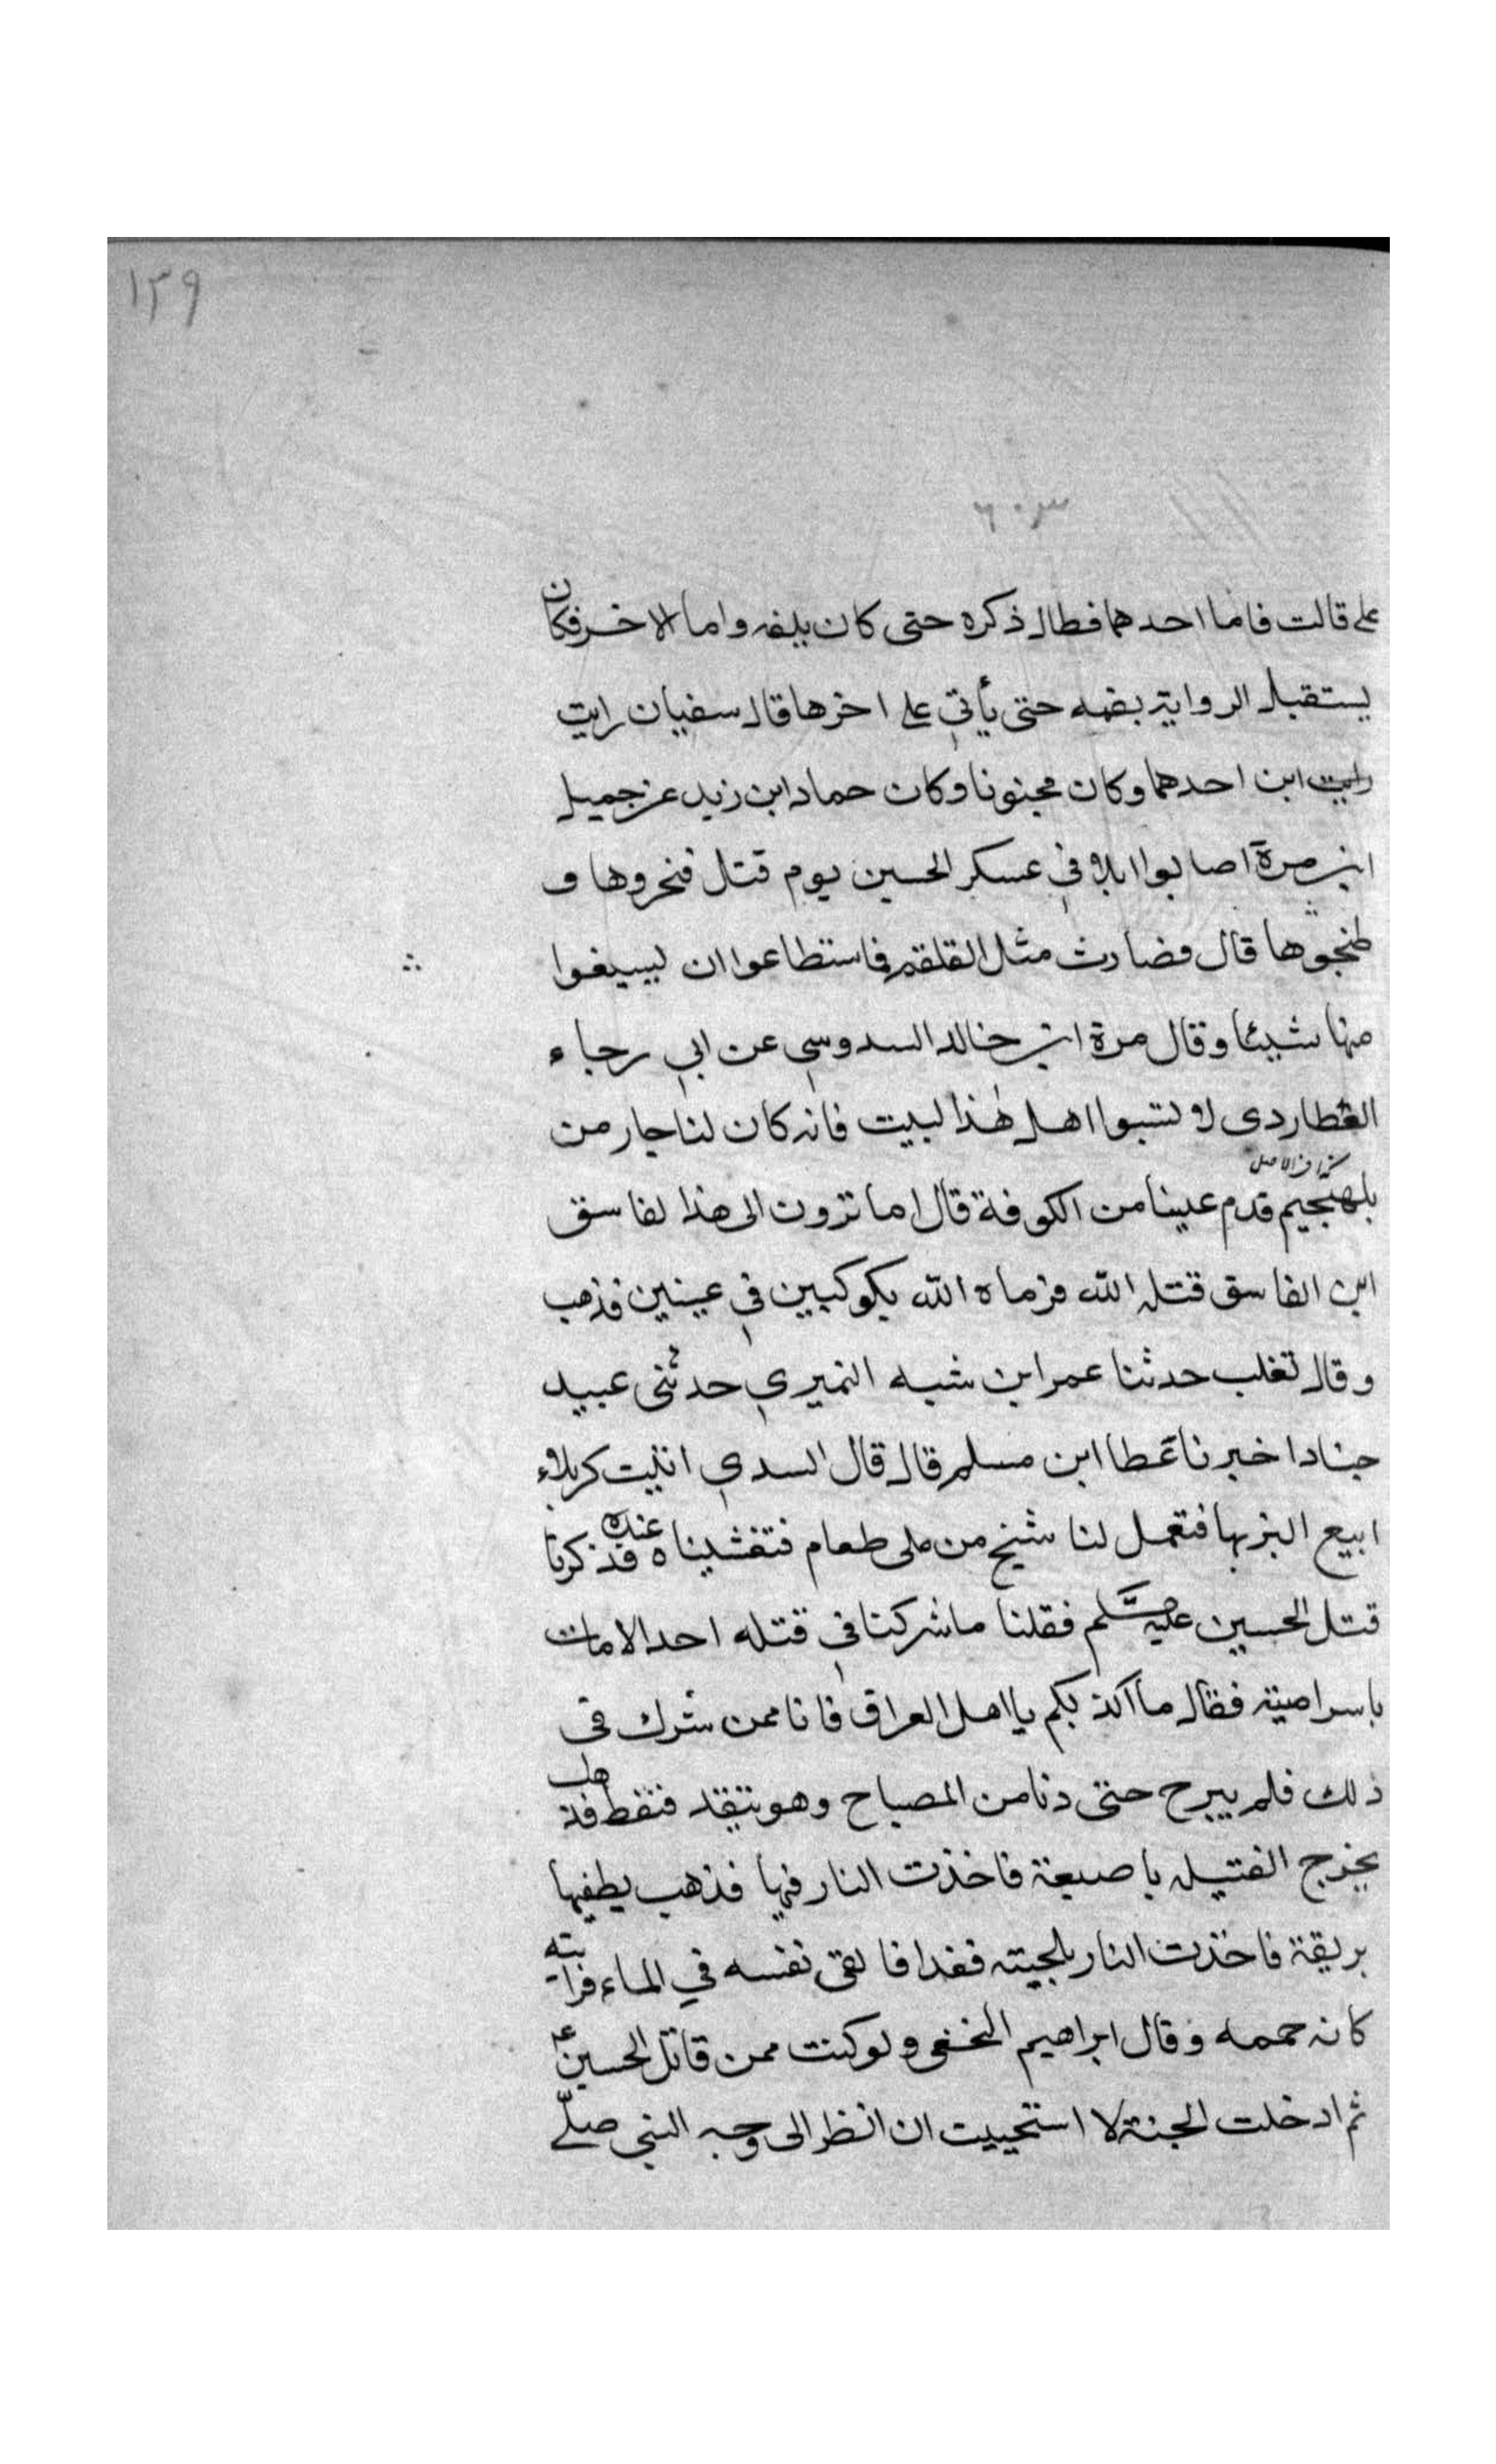 ١٣٩
٦٠٣
على قالت فاما احدهما فطال ذكره حتى كان يلفه واما الاخر فكان
يستقبل الرواية بفمه حتى يأتي على اخرها قال سفيان رايت
رايت ابن احدهما وكان مجنونا وكان حماد ابن زيد عن جميل
ابن مرة اصابوا ابلا في عسكر الحسين يوم قتل فنحروها و
طبخوها قال فصارت مثل القلقم فاستطاعوا ان ليسيغوا
منها شيئا وقال مرة ابن خالد السدوسي عن ابي رجاء
العطاردى لا تسبوا اهل هذا لبيت فانه كان لنا جار من
كذا فى الاصل
بلهجيم قدم علينا من الكوفة قال اما ترون الى هذا لفاسق
ابن الفاسق قتله الله فرماه الله بكوكبين في عينين فذهب
وقال تغلب حدثنا عمر ابن شبه النميري حدثنى عبيد
جنادا خبرنا عطا ابن مسلم قال قال السدي اتيت كربلاء
ابيع البز بها فتعمل لنا شيخ من طى طعام فتغشيناه عنده فذكرنا
قتل الحسين عليه سلم فقلنا ما شركنا في قتله احد الا مات
باسرا ميته فقال ما اكذبكم يا اهل العراق فانا ممن شرك فى
ذلك فلم يبرح حتى دنا من المصباح وهو يتقد فنقط فذهب
يخرج الفتيله باصبعة فاخذت النار فيها فذهب يطفيها
بريقة فاخذت النار بلحيته فغدا فالقى نفسه في الماء فرايته
كانه حممه وقال ابراهيم النخعى ولو كنت ممن قاتل الحسينؑ
ثم ادخلت الجنة لا استحييت ان انظر الى وجه النبي صلّے